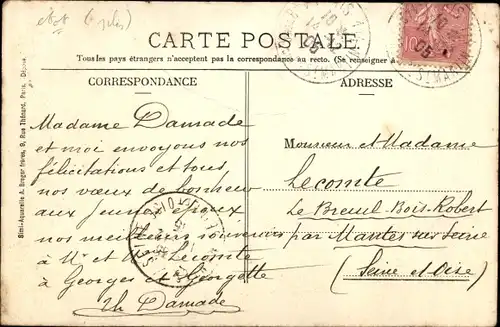 CARTE POSTALE
Tous les pays étrangers n'acceptent pas la correspondance au recto. (Se renseigner à
CORRESPONDANCE
ADRESSE
Simi-Aquarelle A. Breger frères, 9, Rue Thénard, Paris. Déposé
Madame Damade
et moi envoyons nos
félicitations et tous
nos vœux de bonheur
aux Jeunes époux
nos meilleurs souvenirs
à Mr et Mme Lecomte
à Georges et Gengotte
Ch Damade
Monsieur et Madame
Lecomte
Le Breuil-Bois-Robert
par Mantes sur Seine
(Seine et Oise)